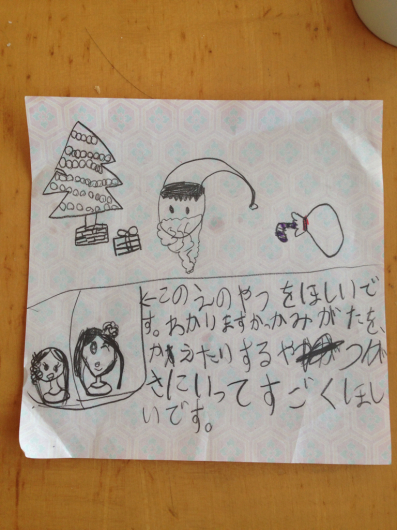 このえのやつをほしいで
す。わかりますか。かみがたを、
かえたりするやつが
さにいってすごくほし
いです。